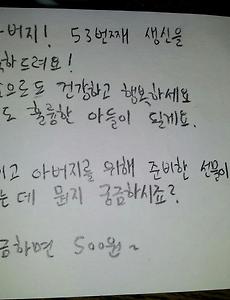 버지! 53번째 생신을
하드려요!
으로도 건강하고 행복하세요
도 훌륭한 아들이 될게요.
이고 아버지를 위해 준비한 선물이
는데 뭔지 궁금하시죠?
금하면 500원~